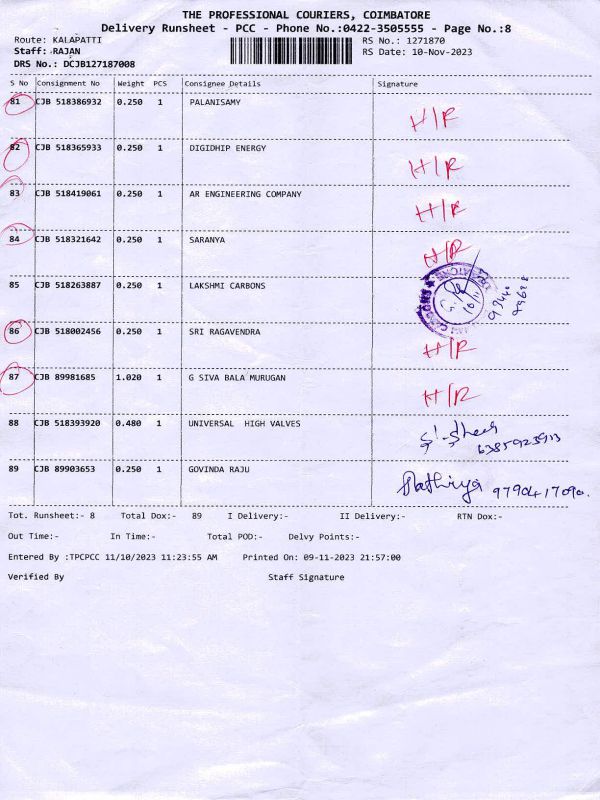 THE PROFESSIONAL COURIERS, COIMBATORE
Delivery Runsheet - PCC - Phone No.:0422-3505555 - Page No.:8
Route: KALAPATTI RS No.: 1271870
Staff: RAJAN RS Date: 10-Nov-2023
DRS No.: DCJB127187008
S No Consignment No Weight PCS Consignee Details Signature
81 CJB 518386932 0.250 1 PALANISAMY H/R
82 CJB 518365933 0.250 1 DIGIDHIP ENERGY H/R
83 CJB 518419061 0.250 1 AR ENGINEERING COMPANY H/R
84 CJB 518321642 0.250 1 SARANYA H/R
85 CJB 518263887 0.250 1 LAKSHMI CARBONS
86 CJB 518002456 0.250 1 SRI RAGAVENDRA H/R
87 CJB 89981685 1.020 1 G SIVA BALA MURUGAN H/R
88 CJB 518393920 0.480 1 UNIVERSAL HIGH VALVES 6385923913
89 CJB 89903653 0.250 1 GOVINDA RAJU 9790417090.
Tot. Runsheet:- 8 Total Dox:- 89 I Delivery:- II Delivery:- RTN Dox:-
Out Time:- In Time:- Total POD:- Delvy Points:-
Entered By :TPCPCC 11/10/2023 11:23:55 AM Printed On: 09-11-2023 21:57:00
Verified By Staff Signature